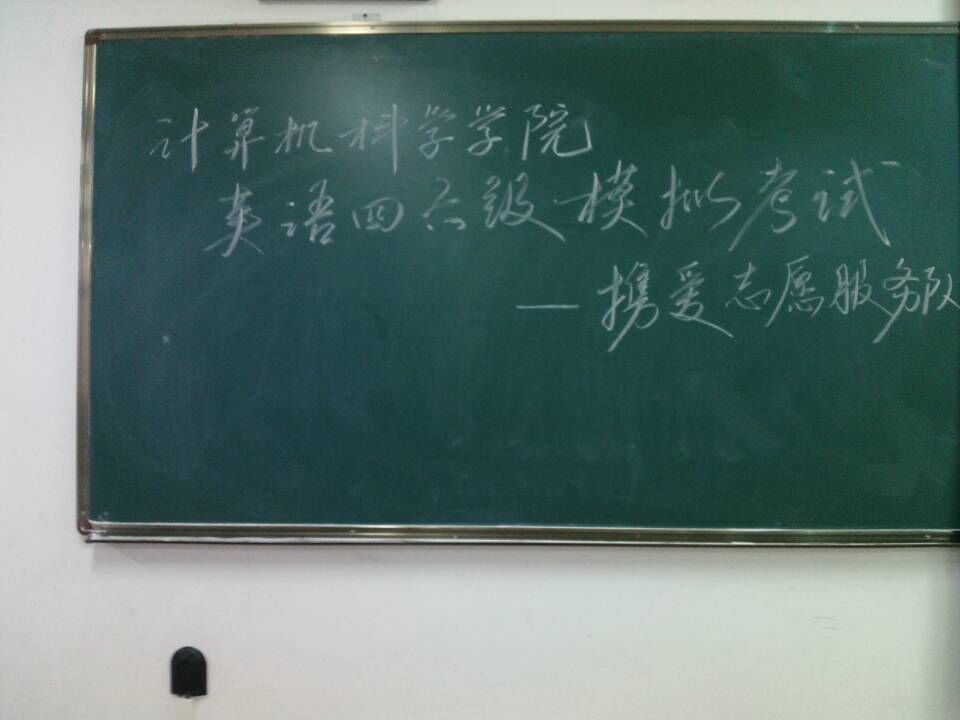 计算机科学学院
英语四六级模拟考试
—携爱志愿服务队